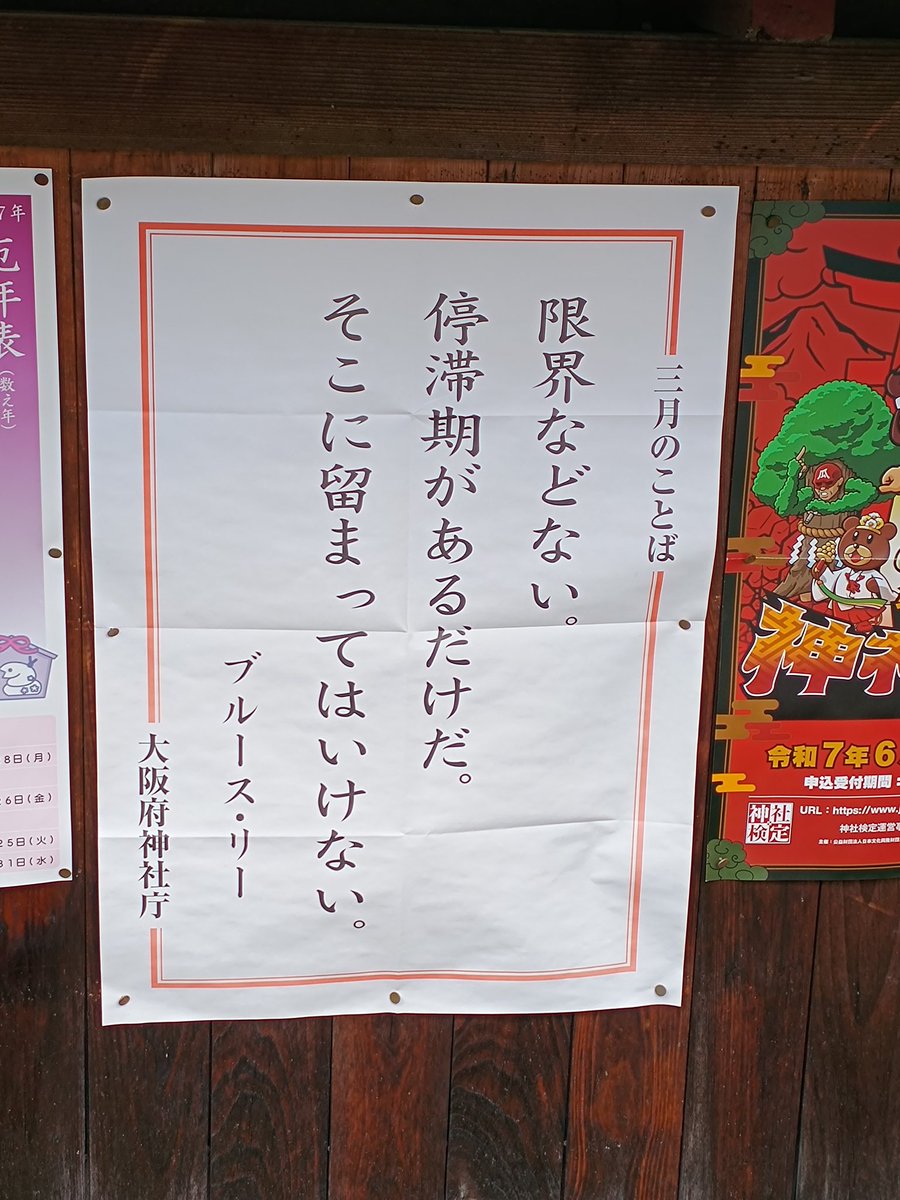 三月のことば
限界などない。
停滞期があるだけだ。
そこに留まってはいけない。
ブルース・リー
大阪府神社庁
7年
厄年表
(数え年)
8日(月)
6日(金)
25日(火)
31日(水)
瓜
令和7年6
申込受付期間:
神社
検定
URL:https://www.j
神社検定運営事